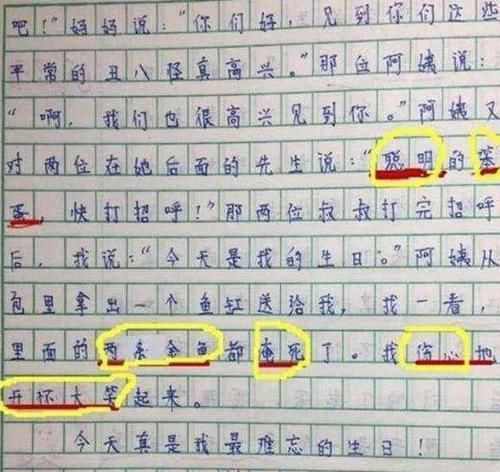 吧！”妈妈说：“你们好，见到你们这些
平常的丑八怪真高兴。”那位阿姨说：
“啊，我们也很高兴见到你。”阿姨又
对两位在她后面的先生说：“聪明的笨
蛋，快打招呼！”那两位叔叔打完招呼
后，我说：“今天是我的生日。”阿姨从
包里拿出一个鱼缸送给我，我一看，
里面的两条金鱼都淹死了。我伤心地
开怀大笑起来。
今天真是我最难忘的生日！